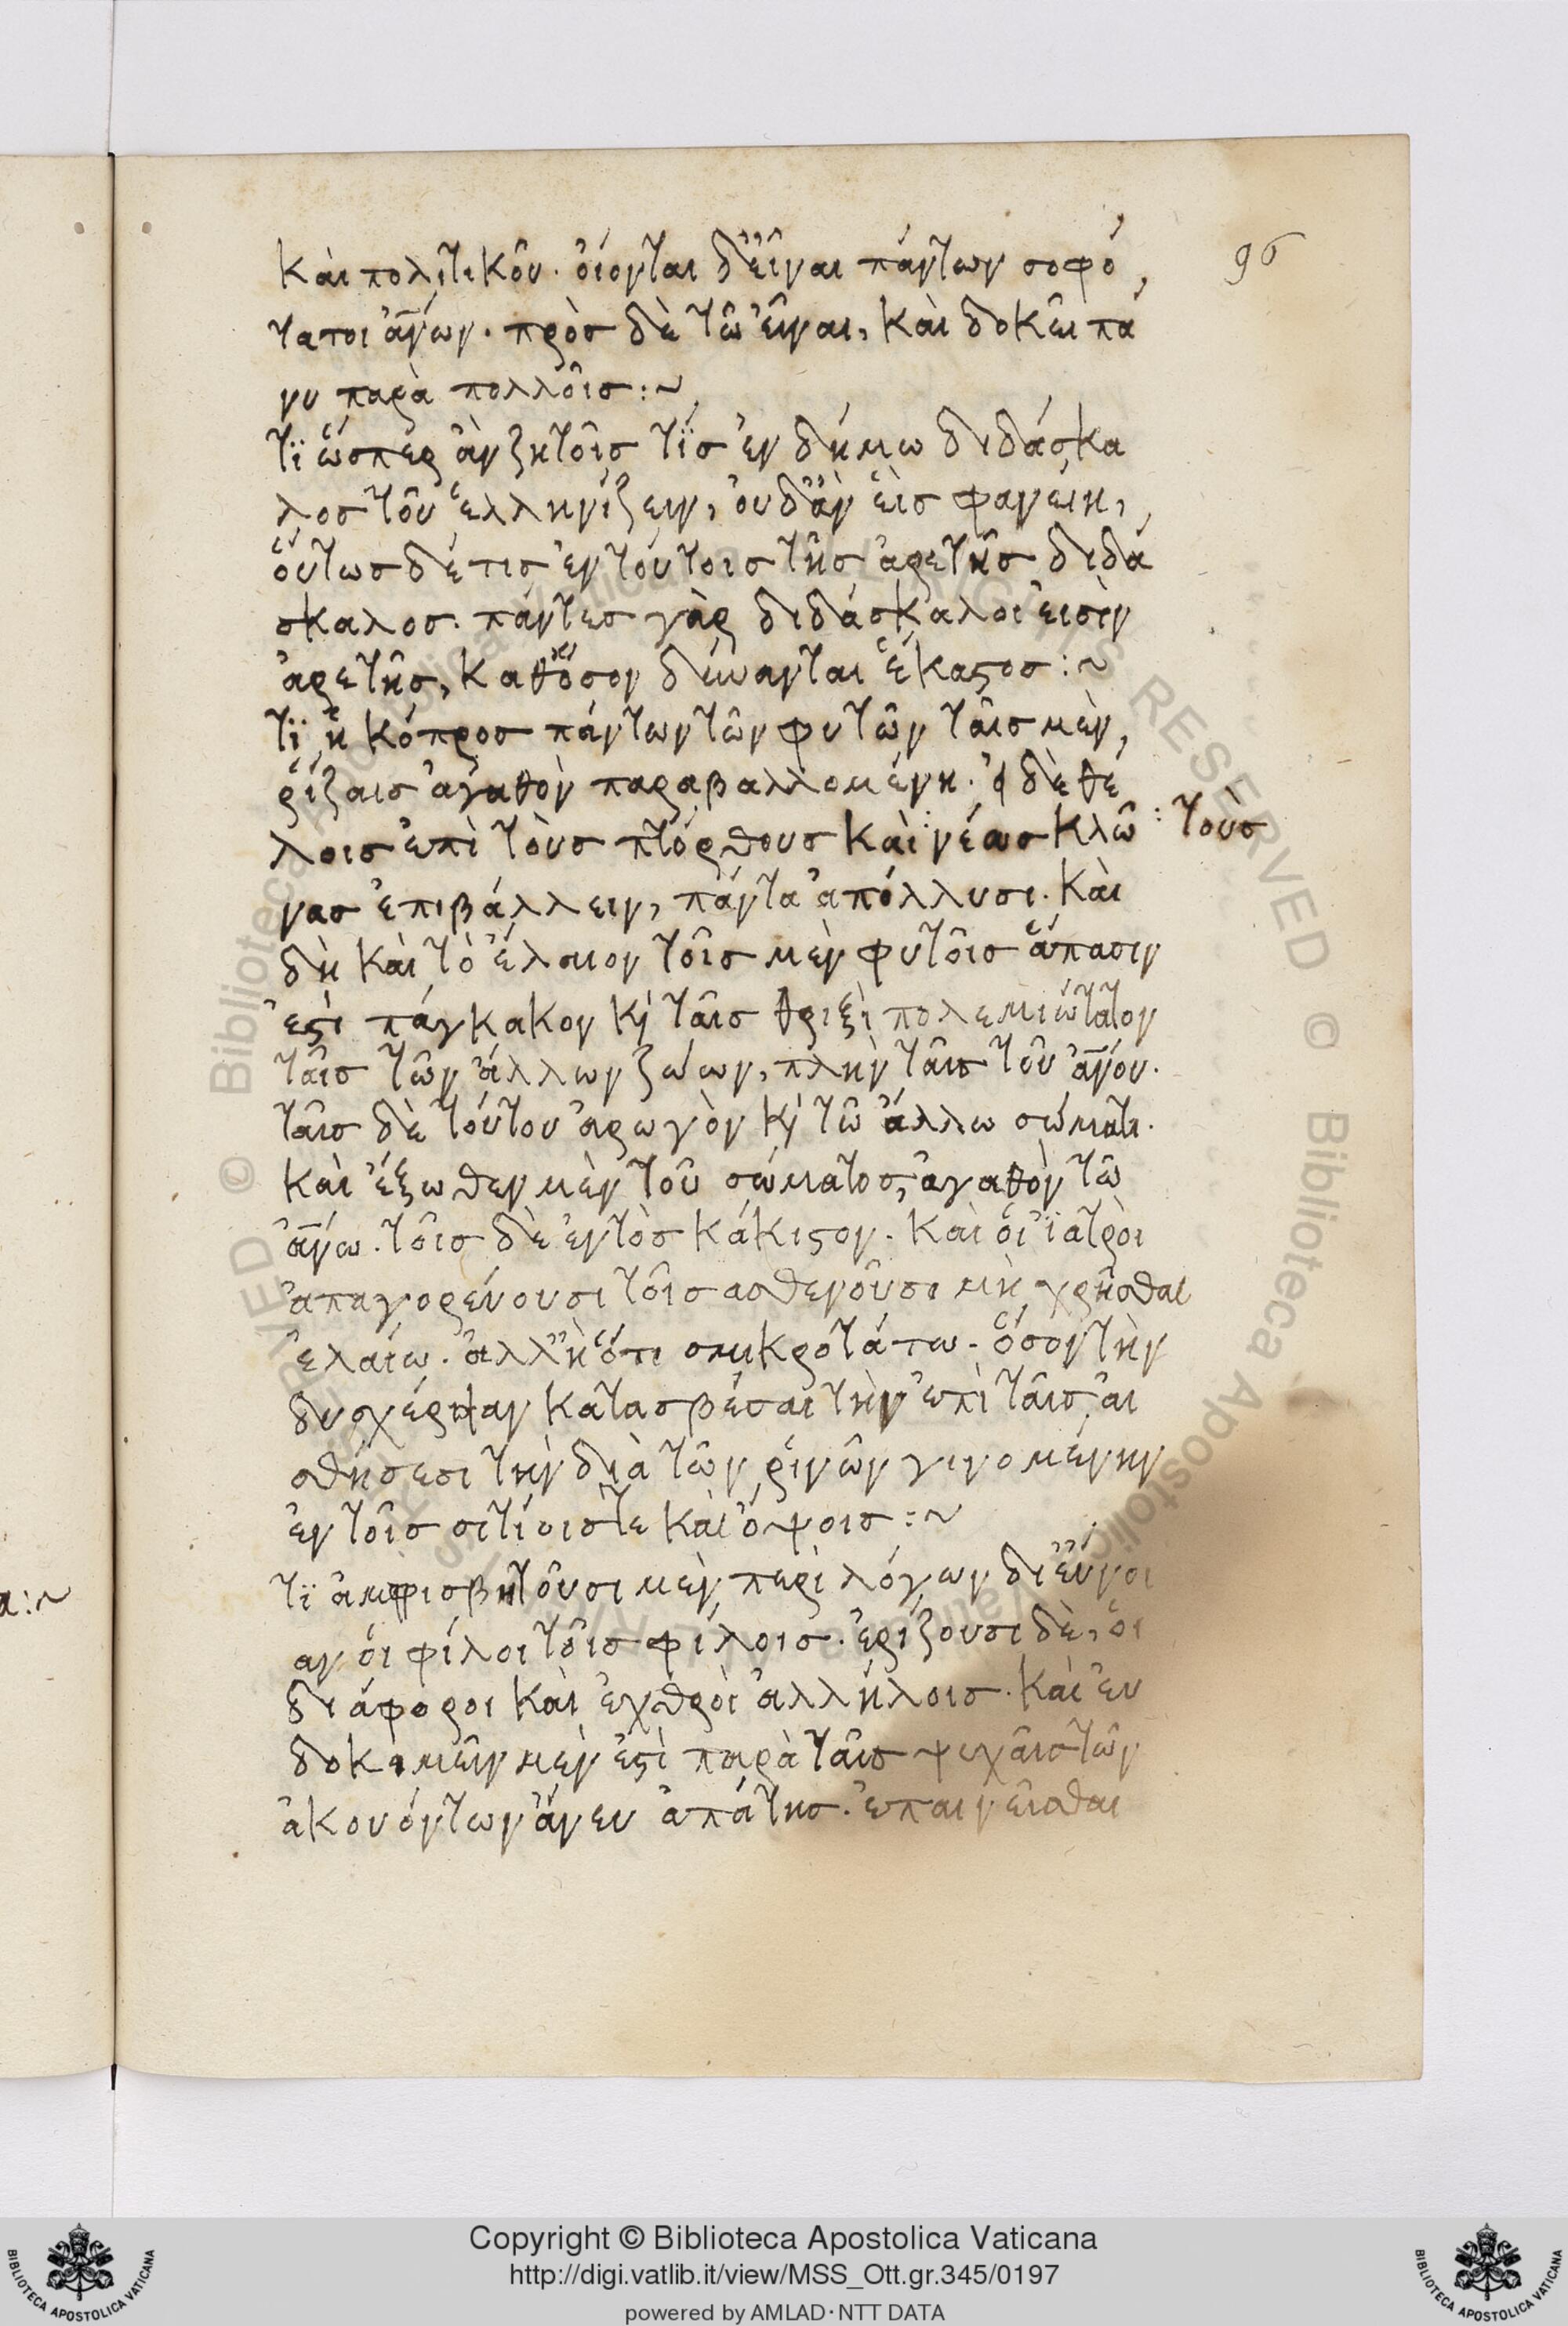 96
καὶ πολιτικοῦ. οἴονται δ' εἶναι πάντων σοφώ
τατοι ἀνων. πρὸσ δὲ τῶ εἶναι, καὶ δοκεῖ πά
νυ παρὰ πολλοῖσ :~
Τί ὥσπερ ἂν ζητοῖσ τίσ ἐν δήμω διδάσκα
λοσ τοῦ ἑλληνίζειν, οὐδ' ἂν εἷσ φανείη,
οὕτωσ δέ τισ ἐν τούτοισ τῆσ ἀρετῆσ διδά
σκαλοσ. πάντεσ γὰρ διδάσκαλοι εἰσὶν
ἀρετῆσ, καθ' ὅσον δύνανται ἕκαστοσ :~
Τί ἡ κόπροσ πάντων τῶν φυτῶν ταῖσ μὲν
ῥίζαισ ἀγαθὸν παραβαλλομένη. εἰ δὲ θέ
λοισ ἐπὶ τοὺσ πτόρθουσ καὶ νέασ κλῶ : τοὺσ
νασ ἐπιβάλλειν, πάντα ἀπόλλυσι. καὶ
δὴ καὶ τὸ ἔλαιον τοῖσ μὲν φυτοῖσ ἅπασιν
ἐστὶ πάγκακον κ ταῖσ θριξὶ πολεμιώτατον
ταῖσ τῶν ἄλλων ζώων, πλὴν ταῖσ τοῦ ἀνου.
ταῖσ δὲ τούτου ἀρωγὸν κ τῶ ἄλλω σώματι.
καὶ ἔξωθεν μὲν τοῦ σώματοσ, ἀγαθὸν τῶ
ἀνω. τοῖσ δὲ ἐντὸσ κάκιστον. καὶ οἱ ἰατροὶ
ἀπαγορεύουσι τοῖσ ἀσθενοῦσι μὴ χρῆσθαι
ἐλαίω. ἀλλ' ἢ ὅτι σμικροτάτω. ὅσον τὴν
δυσχέρειαν κατασβέσαι τὴν ἐπὶ ταῖσ αἰ
σθήσεσι τὴν διὰ τῶν ῥινῶν γινομένην
ἐν τοῖσ σιτίοισ τε καὶ ὄψοισ :~
Τί ἀμφισβητοῦσι μὲν περὶ λόγων δι' εὔνοι
αν οἱ φίλοι τοῖσ φίλοισ. ἐρίζουσι δὲ, οἱ
διάφοροι καὶ ἐχθροὶ ἀλλήλοισ. καὶ εὐ
δοκιμεῖν μὲν ἐστὶ παρὰ ταῖσ ψυχαῖσ τῶν
ἀκουόντων ἄνευ ἀπάτησ. ἐπαινεῖσθαι
α :~
Copyright © Biblioteca Apostolica Vaticana
http://digi.vatlib.it/view/MSS_Ott.gr.345/0197
powered by AMLAD·NTT DATA